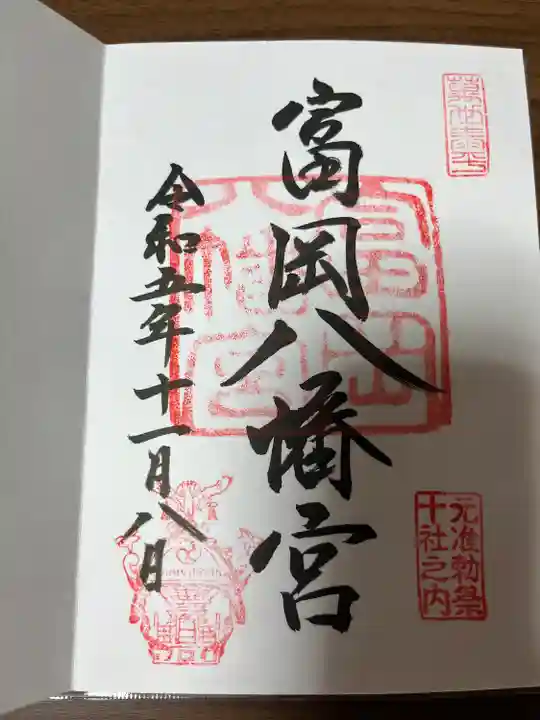 萬世泰平
富岡八幡宮
元准勅祭
十社之内
令和五年十一月八日